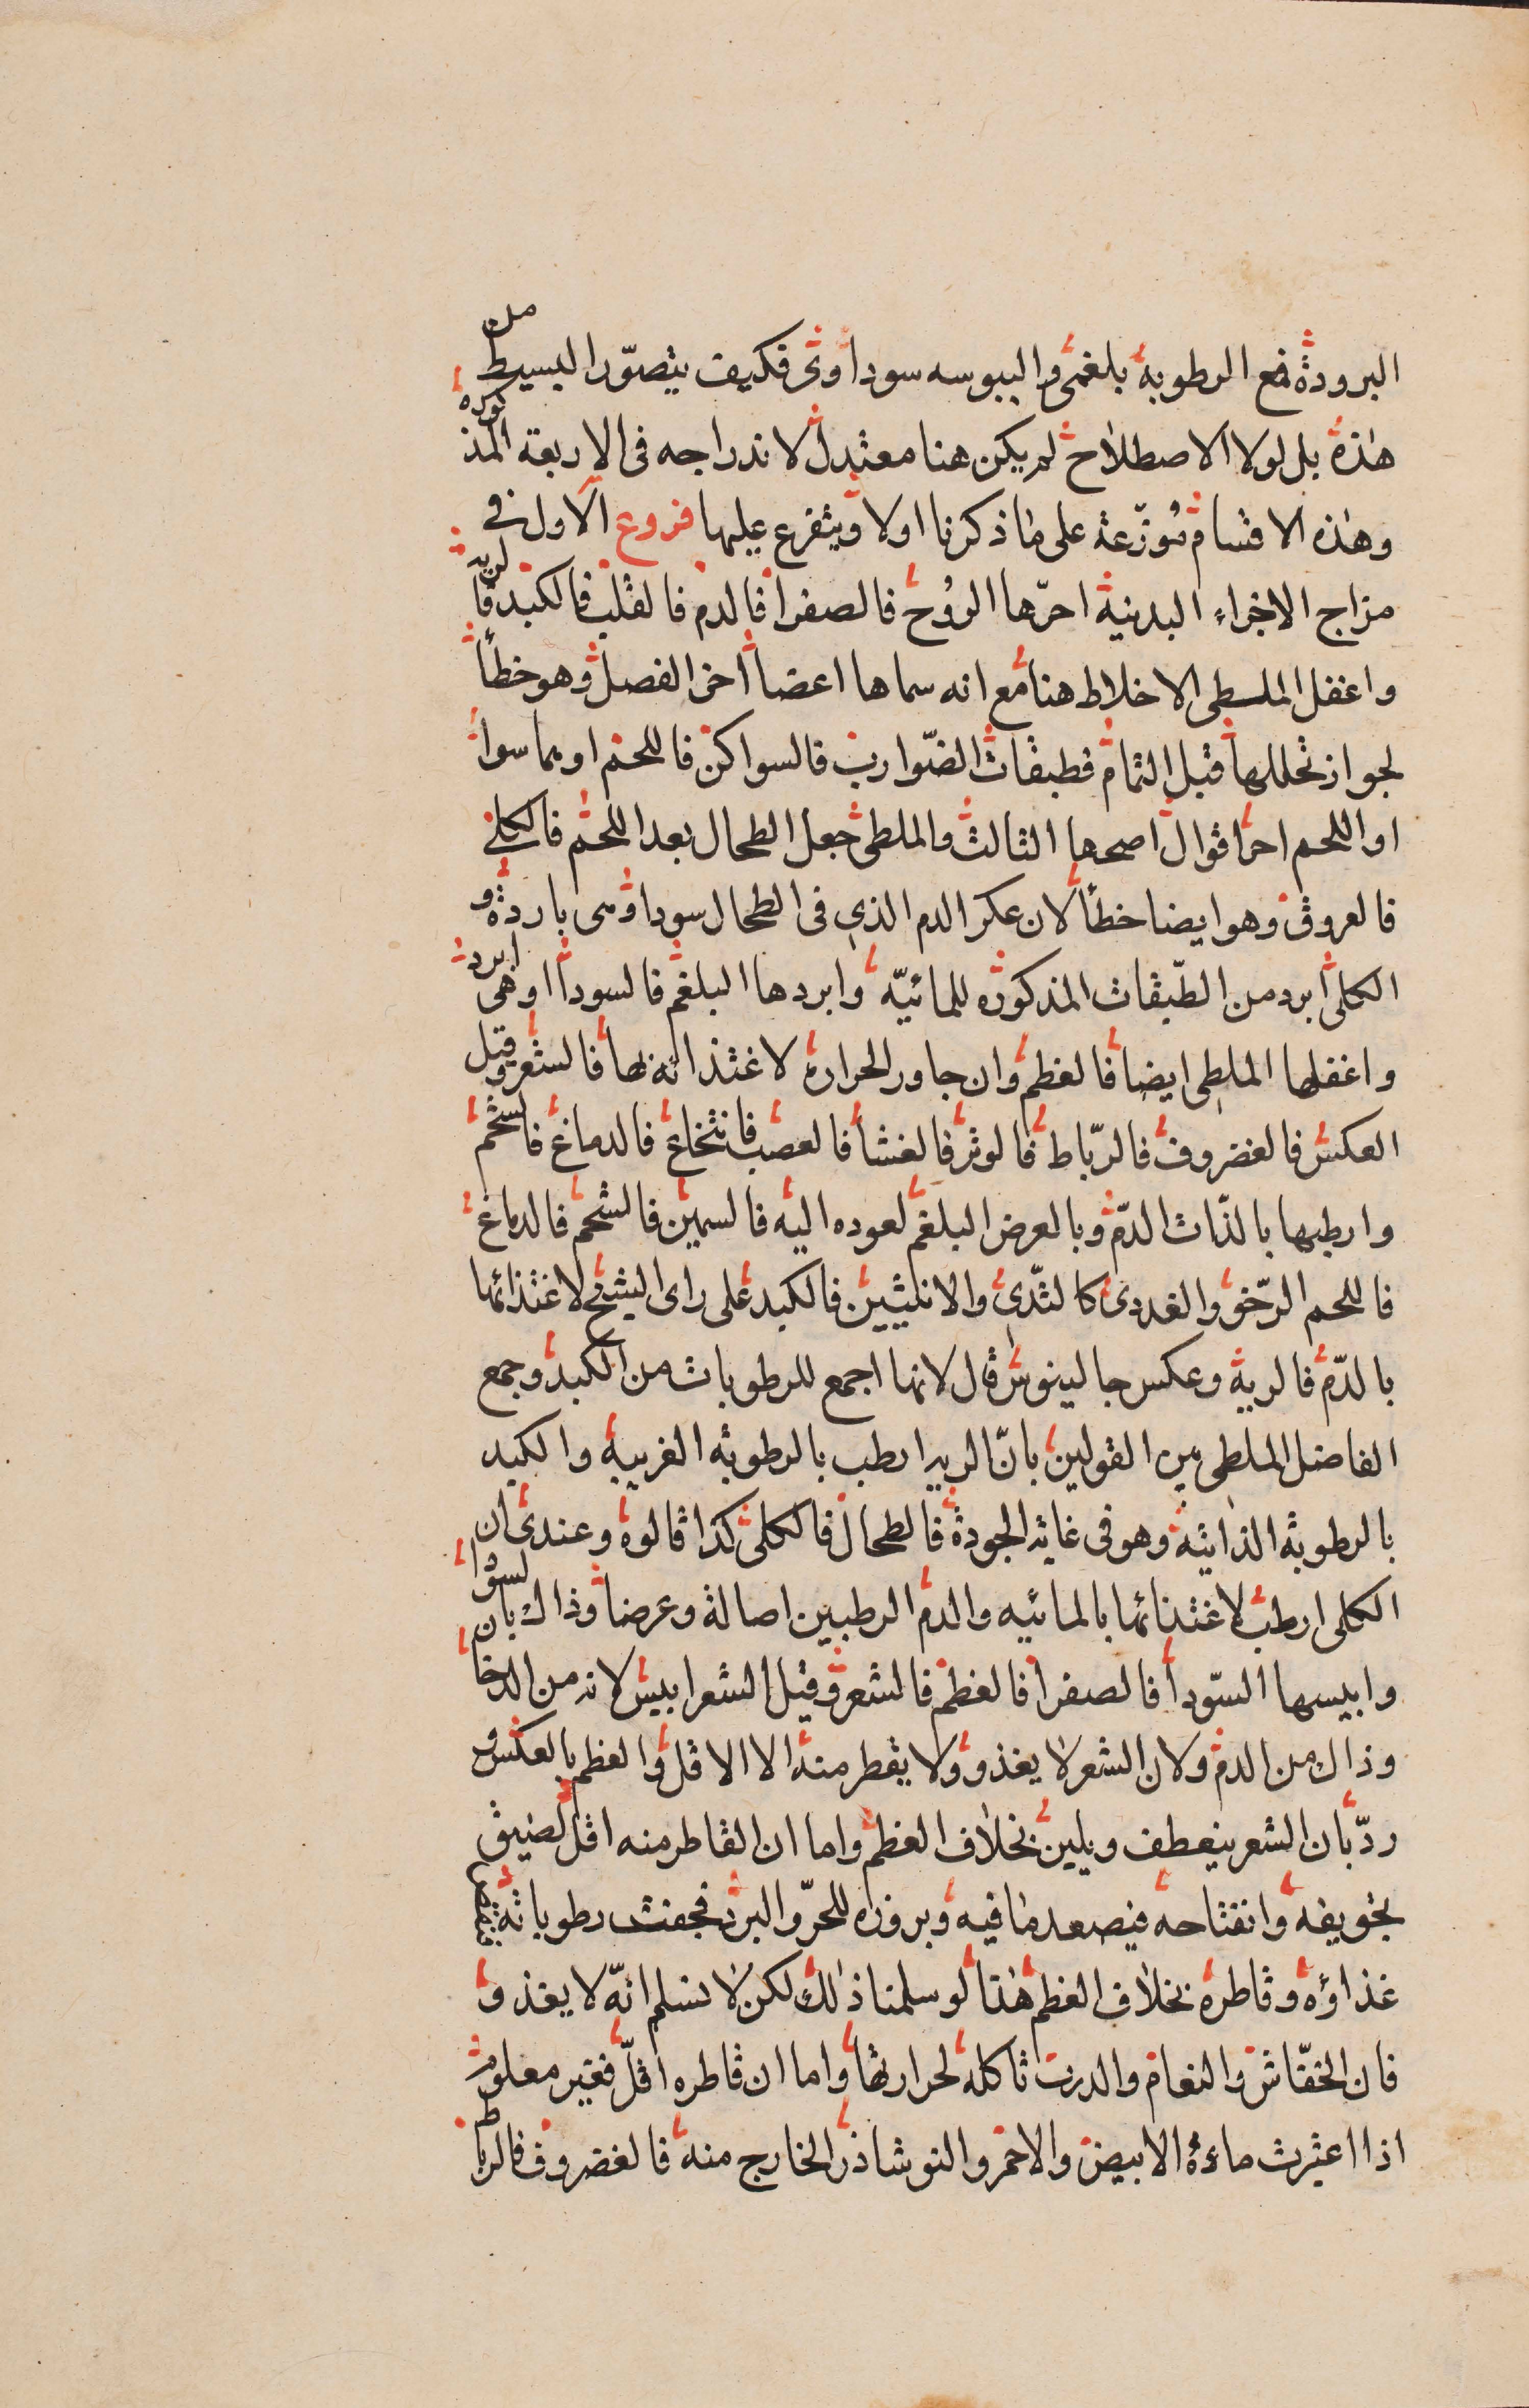 البرودة فمع الرطوبة بلغمى واليبوسه سوداوى فكيف يتصوّر البسيط من
هٰذه بل لولا الاصطلاح لم يكن هنا معتدل لاندراجه فى الاربعة المذكورة
وهٰذه الاقسام مُوزّعة على ما ذكرنا اولا ويتفرع عليها فروع الاول فى
مزاج الاجزاء البدنية احرّها الرُوح فالصفرا فالدم فالقلب فالكبد فالريه
واغفل الملطى الاخلاط هنا مع انه سماها اعضا اخر الفصل وهو خطأ
لجواز تحللها قبل التمام فطبقات الضّوارب فالسواكن فاللحم او هما سوا
او اللحم احر اقوال اصحها الثالث والملطى جعل الطحال بعد اللحم فالكلى
فالعروق وهو ايضا خطأ لان عكر الدم الذى فى الطحال سوداوى باردة و
الكلى ابرد من الطّبقات المذكوره للمائيّة وابردها البلغم فالسودا اوهى ابرد
واغفلها الملطى ايضا فالعظم وان جاور الحرارة لاغتذائه بها فالشعر وقيل
العكس فالغضروف فالرّباط فالوتر فالغشا فالعصب فالنخاع فالدماغ فالشحم
وارطبها بالذّات الدّم وبالعرض البلغم لعوده اليه فالسمين فالشحم فالدماغ
فاللحم الرّخو والغددى كالثّدى والانثيين فالكبد على راى الشيخ لاغتذائها
بالدّم فالرية وعكس جالينوس قال لانها اجمع للرطوبات من الكبد وجمع
الفاضل الملطى بين القولين بانّ الريه ارطب بالرطوبة الغريبة والكبد
بالرطوبة الذاتية وهو فى غاية الجودة فالطحال فالكلى كذا قالوه وعندى ان
الكلى ارطب لاغتذائها بالمائيه والدم الرطبين اصالة وعرضا وذاك بان لسوا
وايبسها السّودا فالصفرا فالعظم فالشعر وقيل الشعر ايبس لانه من الدخا
وذاك من الدم ولان الشعر لا يغذو ولا يقطر منه الا الاقل والعظم بالعكس و
ردّ بان الشعر ينعطف ويلين بخلاف العظم واما ان القاطر منه اقل لضيق
تجويفه وانفتاحه فيصعد ما فيه وبروزه للحرّ والبرد فجفت رطوباته
غذاؤه وقاطره بخلاف العظم هٰذا لو سلمنا ذٰلك لكن لا نسلم انّه لا يغذو
فان الخفّاش والنعام والدرب تاكله لحرارتها واما ان قاطره اقلّ فغير معلوم
اذا اعتبرت ماءهُ الابيض والاحمر والنوشاذر الخارج منه فالغضروف فالرباط